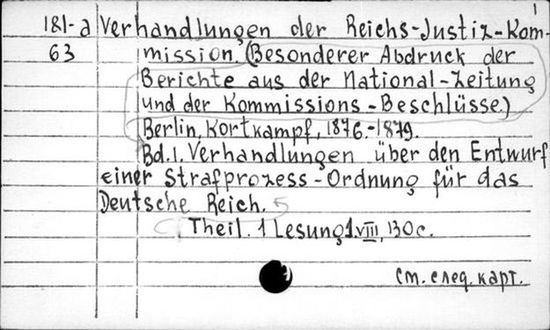 1
181-a Verhandlungen der Reichs-Justiz-Kom-
63 mission. (Besonderer Abdruck der
Berichte aus der National-Zeitung
und der Kommissions-Beschlüsse.)
Berlin, Kortkampf, 1876.-1879.
Bd.1. Verhandlungen über den Entwurf
einer Strafprozess-Ordnung für das
Deutsche Reich.
Theil. 1 Lesung 1. VIII, 130c.
См. след. карт.